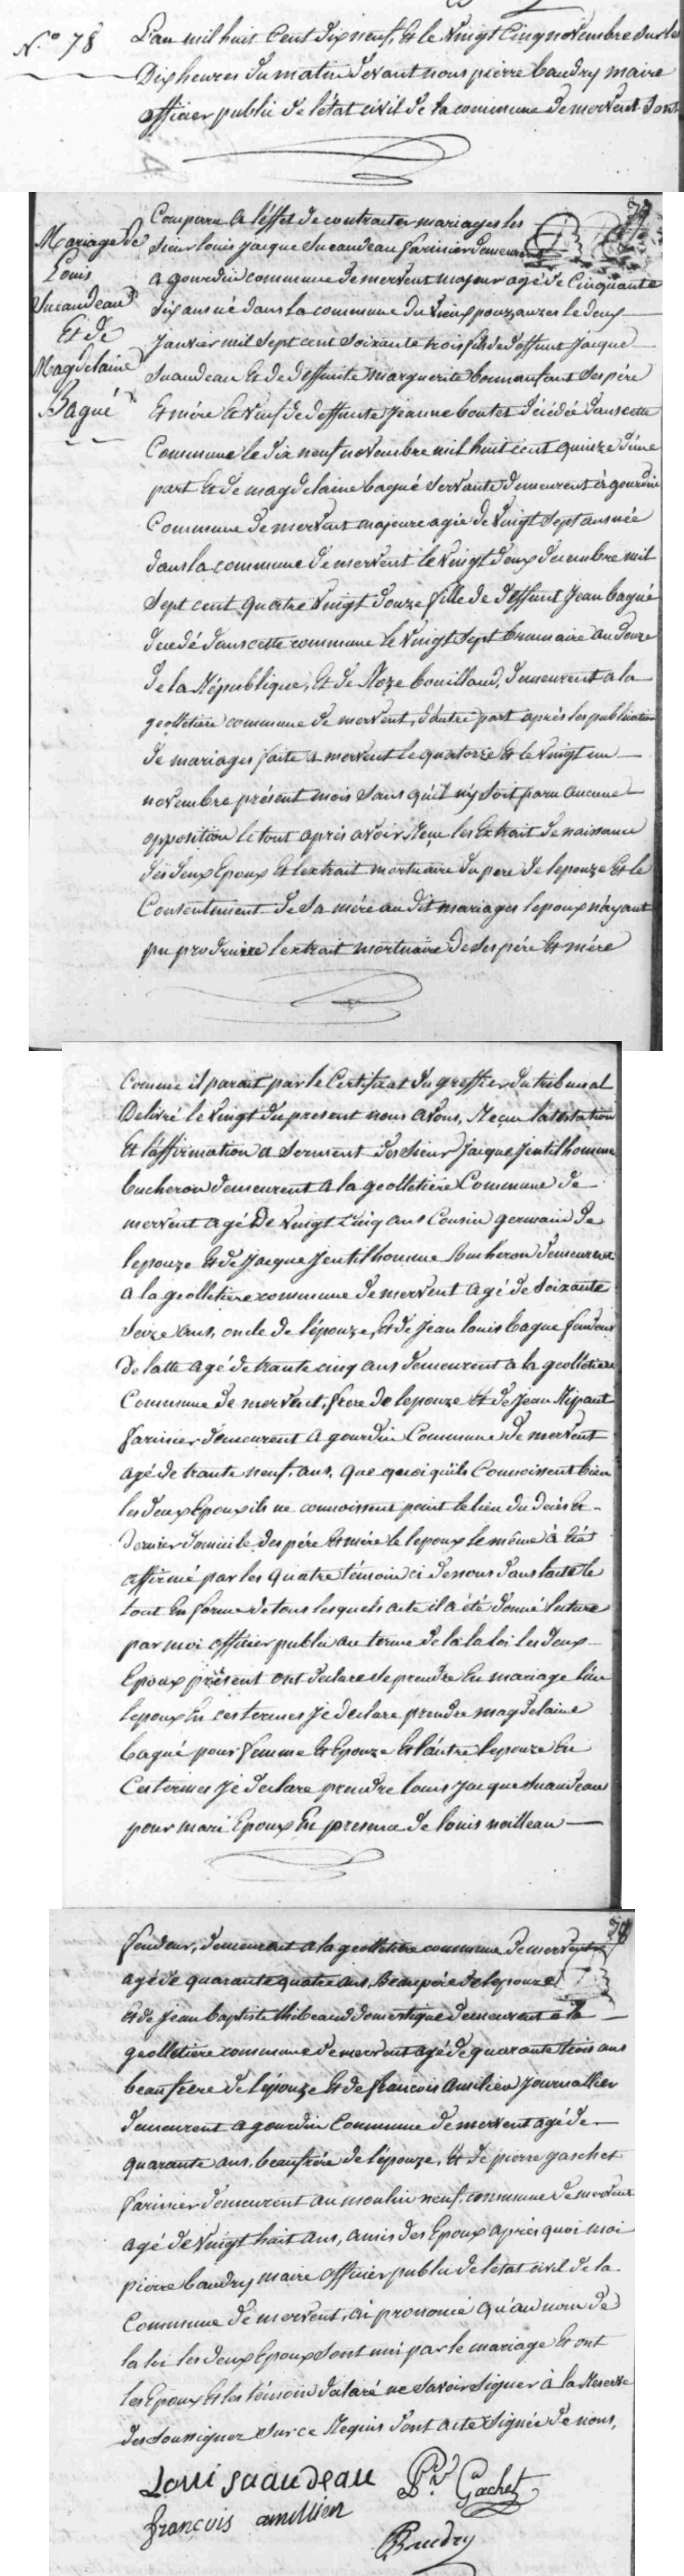 N.o 78
L'an mil huit Cent dix neuf, Et le Vingt Cinq novembre sur les
Dix heures du matin devant nous pierre baudry maire
officier public de l'état civil de la commune de mervent Sont
79
Mariage de
Louis
Suaudeau
Et de
Magdelaine
Bagué
Comparu a l'éffet de contracter mariages les
Sieur louis jacque Suaudeau farinier demeurent
a gourdin commune de mervent majeur agé de Cinquante
Six ans né dans la commune du vieux pouzauzes le deux
janvier mil Sept cent Soixante trois fils de deffunt jacque
Suaudeau Et de deffunte marguerite bonnenfant Ses pére
Et mére Et veuf de deffunte jeanne boutet décédée dans cette
Commune le dix neuf novembre mil huit cent quinze d'une
part Et de magdelaine bagué Servante demeurent à gourdin
Commune de mervent majeure agée de vingt Sept ans née
dans la commune de mervent le vingt deux decembre mil
Sept cent quatre vingt douze fille de deffunt jean bagué
décedé dans cette commune le vingt Sept brumaire an douze
de la République, Et de Roze bouillaud, demeurent a la
geolletiere commune de mervent, d'autre part après les publication
de mariages faite a mervent le quatorze Et le vingt un
novembre présent mois Sans qu'il n'y Soit paru aucune
opposition le tout après avoir Reçu les Extrait de naissance
des deux Epoux Et l'extrait mortuaire du pere de lepouze Et le
Consentement de Sa mére au dit mariages lepoux n'ayant
pu produire lextrait mortuaire de Ses pére Et mére
Comme il parait par le Certificat du greffier du tribunal
Délivré le vingt du present nous avons, Reçu latestation
Et l'affirmation a Serment des Sieur jacque jentilhomme
bucheron demeurent a la geolletière Commune de
mervent agé de vingt cinq ans Cousin germain de
lepouze Et de jacque jentilhomme bucheron demeurent
a la geolletiere commune de mervent agé de Soixante
Seize ans, oncle de l'épouze, Et de jean louis bague fendeur
de latte agé de trante cinq ans demeurent a la geolletiere
Commune de mervent, frere de lepouze Et de jean Ripaut
farinier demeurent a gourdin Commune de mervent
agé de trante neuf, ans, que quoi qu'ils Connoissent bien
les deux Epoux ils ne connoissent point le lieu du décés Et
dernier domicile des pére Et mére le lepoux le même à été
affirmé par les quatre témoin ci dessous dans lacte le
tout En forme de tous lesquels acte il a été donné lecture
par moi officier public au terme de la la loi les deux
Epoux présent ont declare se prendre En mariage l'un
lepoux En ces termes je declare prendre magdelaine
bagué pour femme Et Epouze Et l'autre lepouze En
Ces termes je declare prendre louis jacque Suaudeau
pour mari Epoux En presence de louis noilleau
79
fendeur, demeurent a la geolletiere commune de mervent
agé de quarante quatre ans, beaupére de lepouze
Et de jean baptiste thibeaud domestique demeurent a la
geolletiere commune de mervent agé de quarante trois ans
beaufrere de l'épouze Et de françois amilien journallier
demeurent a gourdin Commune de mervent agé de
quarante ans, beaufrére de l'épouze, Et de pierre gaschet
farinier demeurent au moulin neuf, commune de mervent
agé de vingt huit ans, amis des Epoux après quoi moi
pierre baudry maire officier public de letat civil de la
Commune de mervent, ai prononcé qu'au nom de
la loi les deux Epoux Sont uni par le mariage Et ont
les Epoux Et les témoin déclaré ne Savoir Signer à la Reserve
des Soussigner Sur ce Requis dont acte Signée de nous,
Loui suaudeau Pre Gachet
françois amillien
Baudry